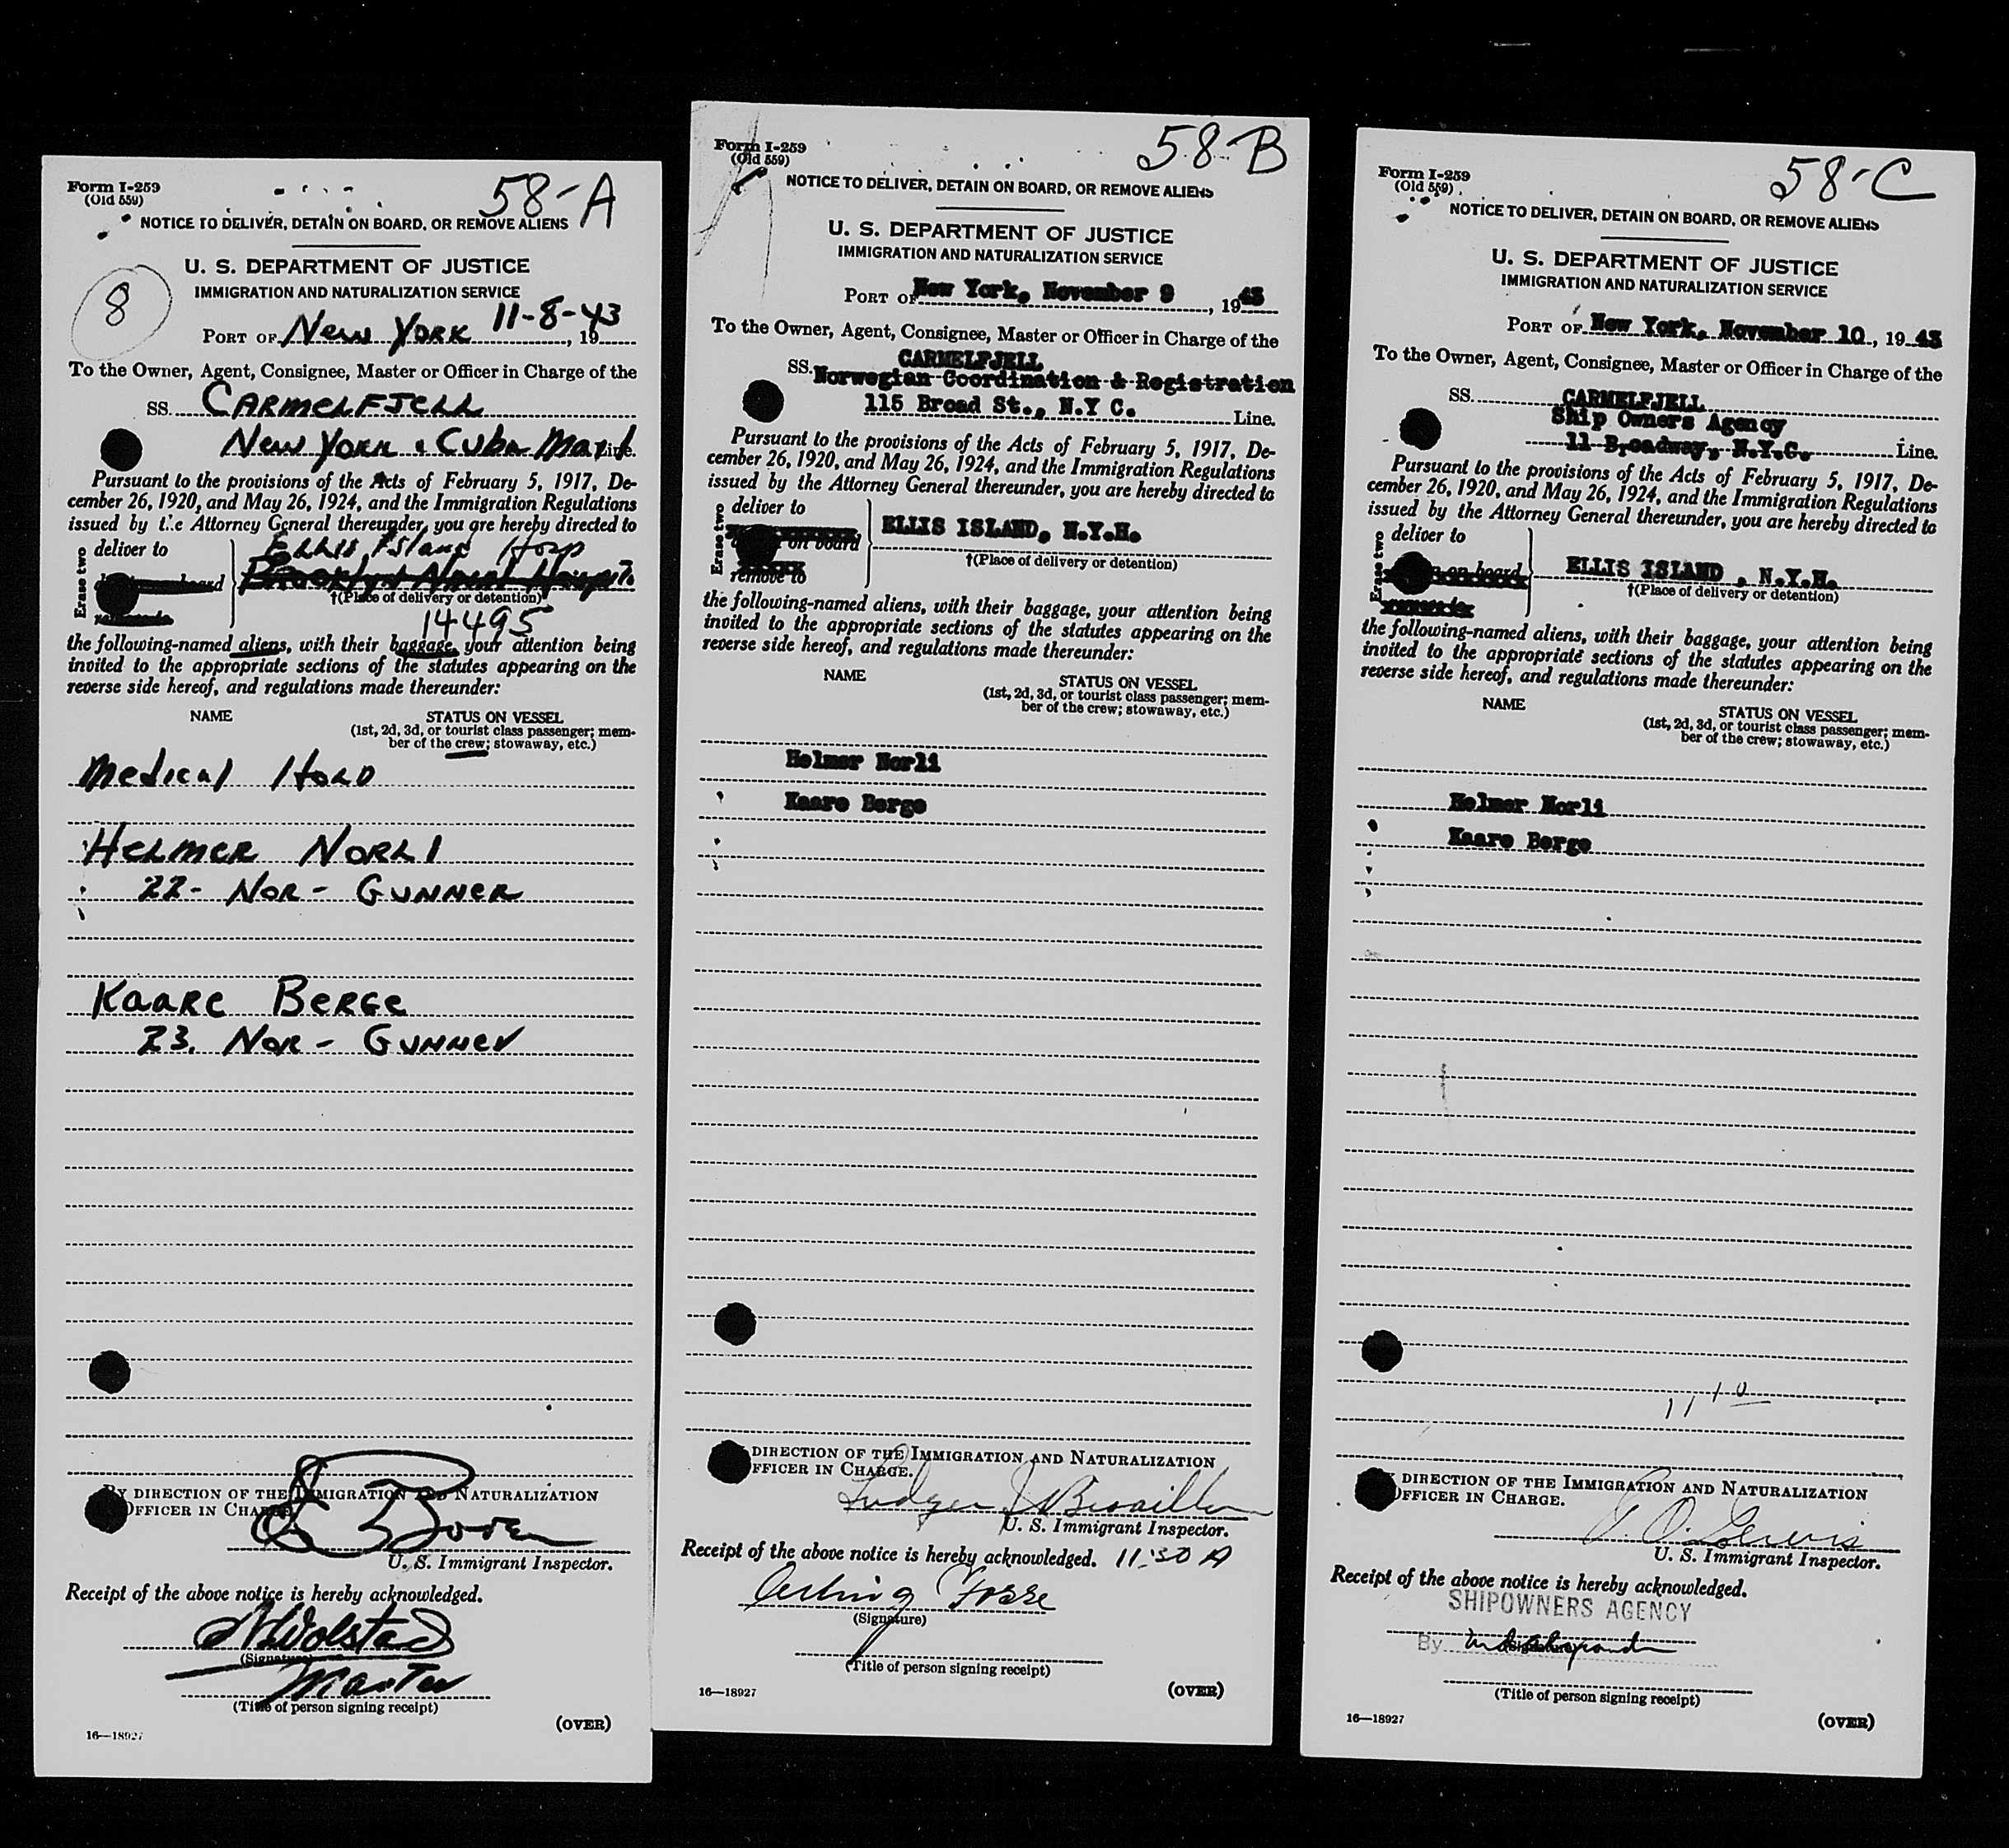 Form I-259
(Old 559)
58-A
NOTICE TO DELIVER, DETAIN ON BOARD, OR REMOVE ALIENS
U. S. DEPARTMENT OF JUSTICE
8
IMMIGRATION AND NATURALIZATION SERVICE
11-8-43
PORT OF New York, 19
To the Owner, Agent, Consignee, Master or Officer in Charge of the
SS. CARMELFJELL
New York & Cuba Mail Line.
Pursuant to the provisions of the Acts of February 5, 1917, De-
cember 26, 1920, and May 26, 1924, and the Immigration Regulations
issued by the Attorney General thereunder, you are hereby directed to
Erase two
deliver to
Ellis Island Hosp
Brooklyn Naval Hosp
†(Place of delivery or detention)
14495
the following-named aliens, with their baggage, your attention being
invited to the appropriate sections of the statutes appearing on the
reverse side hereof, and regulations made thereunder:
NAME
STATUS ON VESSEL
(1st, 2d, 3d, or tourist class passenger; mem-
ber of the crew; stowaway, etc.)
Medical Hold
HELMER NORLI
22- NOR- GUNNER
KAARE BERGE
23. NOR- GUNNER
BY DIRECTION OF THE IMMIGRATION AND NATURALIZATION
OFFICER IN CHARGE.
U. S. Immigrant Inspector.
Receipt of the above notice is hereby acknowledged.
(Signature)
Master
(Title of person signing receipt)
16—18927
(OVER)
Form I-259
(Old 559)
58-B
NOTICE TO DELIVER, DETAIN ON BOARD, OR REMOVE ALIENS
U. S. DEPARTMENT OF JUSTICE
IMMIGRATION AND NATURALIZATION SERVICE
PORT OF New York, November 9, 1943
To the Owner, Agent, Consignee, Master or Officer in Charge of the
CARMELFJELL
SS. Norwegian Coordination & Registration
115 Broad St., N.Y C. Line.
Pursuant to the provisions of the Acts of February 5, 1917, De-
cember 26, 1920, and May 26, 1924, and the Immigration Regulations
issued by the Attorney General thereunder, you are hereby directed to
Erase two
deliver to
on board
remove to
ELLIS ISLAND, N.Y.H.
†(Place of delivery or detention)
the following-named aliens, with their baggage, your attention being
invited to the appropriate sections of the statutes appearing on the
reverse side hereof, and regulations made thereunder:
NAME
STATUS ON VESSEL
(1st, 2d, 3d, or tourist class passenger; mem-
ber of the crew; stowaway, etc.)
Helmer Norli
Kaare Berge
DIRECTION OF THE IMMIGRATION AND NATURALIZATION
FFICER IN CHARGE.
U. S. Immigrant Inspector.
Receipt of the above notice is hereby acknowledged. 11:30 A
Fosse
(Signature)
(Title of person signing receipt)
16—18927
(OVER)
Form I-259
(Old 559)
58-C
NOTICE TO DELIVER, DETAIN ON BOARD, OR REMOVE ALIENS
U. S. DEPARTMENT OF JUSTICE
IMMIGRATION AND NATURALIZATION SERVICE
PORT OF New York, November 10, 1943
To the Owner, Agent, Consignee, Master or Officer in Charge of the
SS. CARMELFJELL
Ship Owners Agency
11 Broadway, N.Y.C. Line.
Pursuant to the provisions of the Acts of February 5, 1917, De-
cember 26, 1920, and May 26, 1924, and the Immigration Regulations
issued by the Attorney General thereunder, you are hereby directed to
Erase two
deliver to
on board
ELLIS ISLAND, N.Y.H.
†(Place of delivery or detention)
the following-named aliens, with their baggage, your attention being
invited to the appropriate sections of the statutes appearing on the
reverse side hereof, and regulations made thereunder:
NAME
STATUS ON VESSEL
(1st, 2d, 3d, or tourist class passenger; mem-
ber of the crew; stowaway, etc.)
Helmer Norli
Kaare Berge
11 10
DIRECTION OF THE IMMIGRATION AND NATURALIZATION
OFFICER IN CHARGE.
Lewis
U. S. Immigrant Inspector.
Receipt of the above notice is hereby acknowledged.
SHIPOWNERS AGENCY
By
(Title of person signing receipt)
16—18927
(OVER)